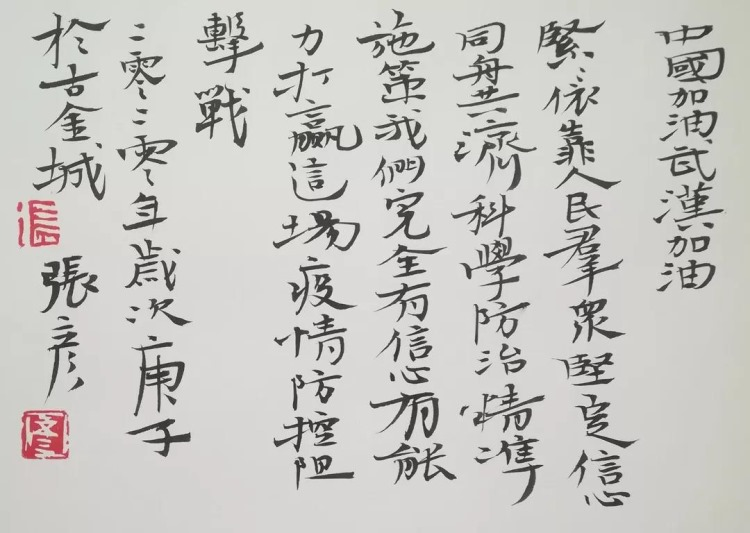 中國加油武漢加油
緊依靠人民羣衆堅定信心
同舟共濟科學防治精準
施策我們完全有信心有能
力打贏這場疫情防控阻
擊戰
二零二零年歲次庚子
於古金城
張彦